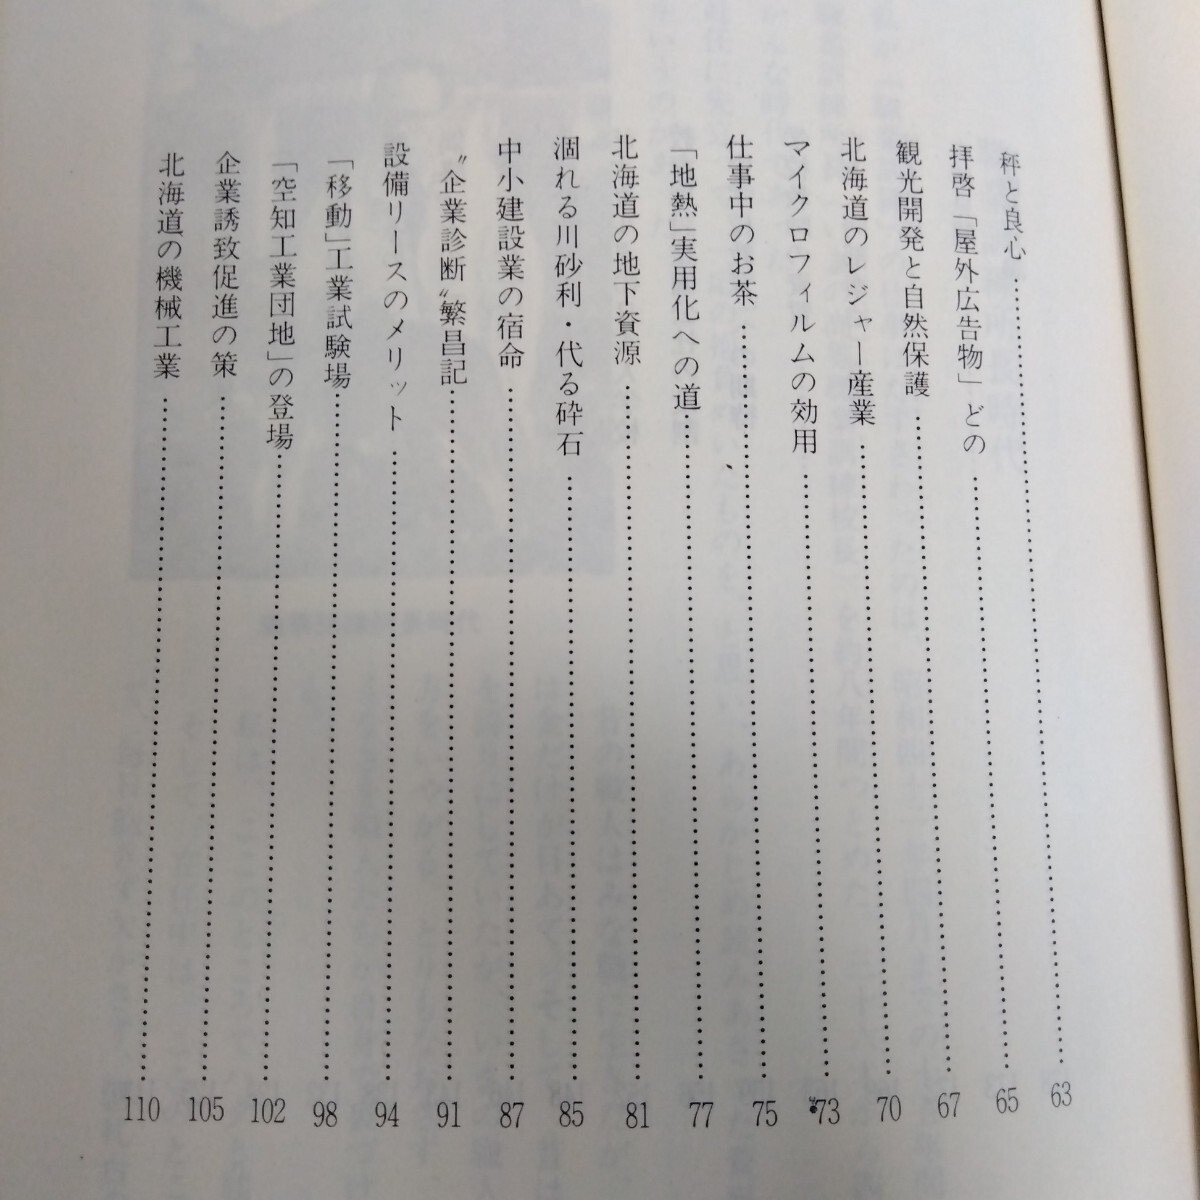 秤と良心……63
拝啓「屋外広告物」どの……65
観光開発と自然保護……67
北海道のレジャー産業……70
マイクロフィルムの効用……73
仕事中のお茶……75
「地熱」実用化への道……77
北海道の地下資源……81
涸れる川砂利・代る砕石……85
中小建設業の宿命……87
〝企業診断〟繁昌記……91
設備リースのメリット……94
「移動」工業試験場……98
「空知工業団地」の登場……102
企業誘致促進の策……105
北海道の機械工業……110